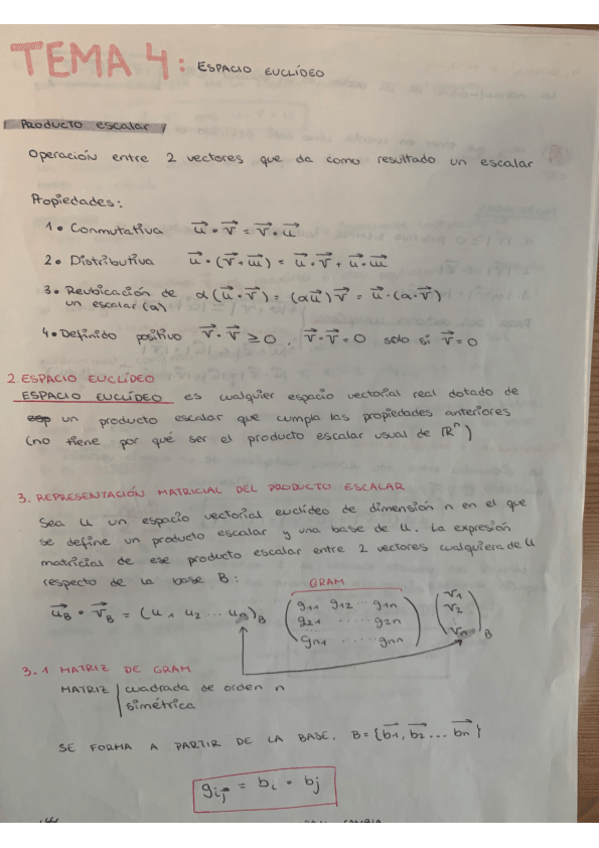 TEMA 4: ESPACIO EUCLÍDEO
Producto escalar
Operación entre 2 vectores que da como resultado un escalar
Propiedades:
1. Conmutativa $\vec{u} \cdot \vec{v} = \vec{v} \cdot \vec{u}$
2. Distributiva $\vec{u} \cdot (\vec{v} + \vec{w}) = \vec{u} \cdot \vec{v} + \vec{u} \cdot \vec{w}$
3. Reubicación de $\alpha(\vec{u} \cdot \vec{v}) = (\alpha\vec{u})\vec{v} = \vec{u} \cdot (\alpha \cdot \vec{v})$
un escalar (α)
4. Definido positivo $\vec{v} \cdot \vec{v} \geq 0$, $\vec{v} \cdot \vec{v} = 0$ solo si $\vec{v} = 0$
2. ESPACIO EUCLÍDEO
ESPACIO EUCLÍDEO es cualquier espacio vectorial real dotado de
esp un producto escalar que cumpla las propiedades anteriores
(no tiene por qué ser el producto escalar usual de $\mathbb{R}^n$)
3. REPRESENTACIÓN MATRICIAL DEL PRODUCTO ESCALAR
Sea U un espacio vectorial euclídeo de dimensión n en el que
se define un producto escalar y una base de U. La expresión
matricial de ese producto escalar entre 2 vectores cualquiera de U
respecto de la base B:
GRAM
$\vec{u}_B \cdot \vec{v}_B = (u_1 \; u_2 \cdots u_n)_B \begin{pmatrix} g_{11} & g_{12} & \cdots & g_{1n} \\ g_{21} & \cdots & \cdots & g_{2n} \\ g_{n1} & \cdots & \cdots & g_{nn} \end{pmatrix} \begin{pmatrix} v_1 \\ v_2 \\ \vdots \\ v_n \end{pmatrix}_B$
3.1 MATRIZ DE GRAM
MATRIZ | cuadrada de orden n
| simétrica
SE FORMA A PARTIR DE LA BASE. $B = \{\vec{b_1}, \vec{b_2} \ldots \vec{b_n}\}$
$g_{ij} = b_i \cdot b_j$